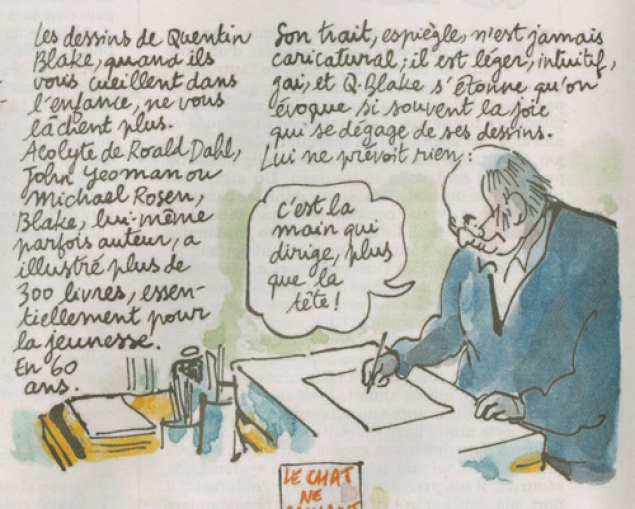 Les dessins de Quentin
Blake, quand ils
vous cueillent dans
l'enfance, ne vous
lâchent plus.
Acolyte de Roald Dahl,
John Yeoman ou
Michael Rosen,
Blake, lui-même
parfois auteur, a
illustré plus de
300 livres, essen-
tiellement pour
la jeunesse.
En 60
ans.
Son trait, espiègle, n'est jamais
caricatural ; il est léger, intuitif,
gai, et Q. Blake s'étonne qu'on
évoque si souvent la joie
qui se dégage de ses dessins.
Lui ne prévoit rien :
C'est la
main qui
dirige, plus
que la
tête !
LE CHAT
NE